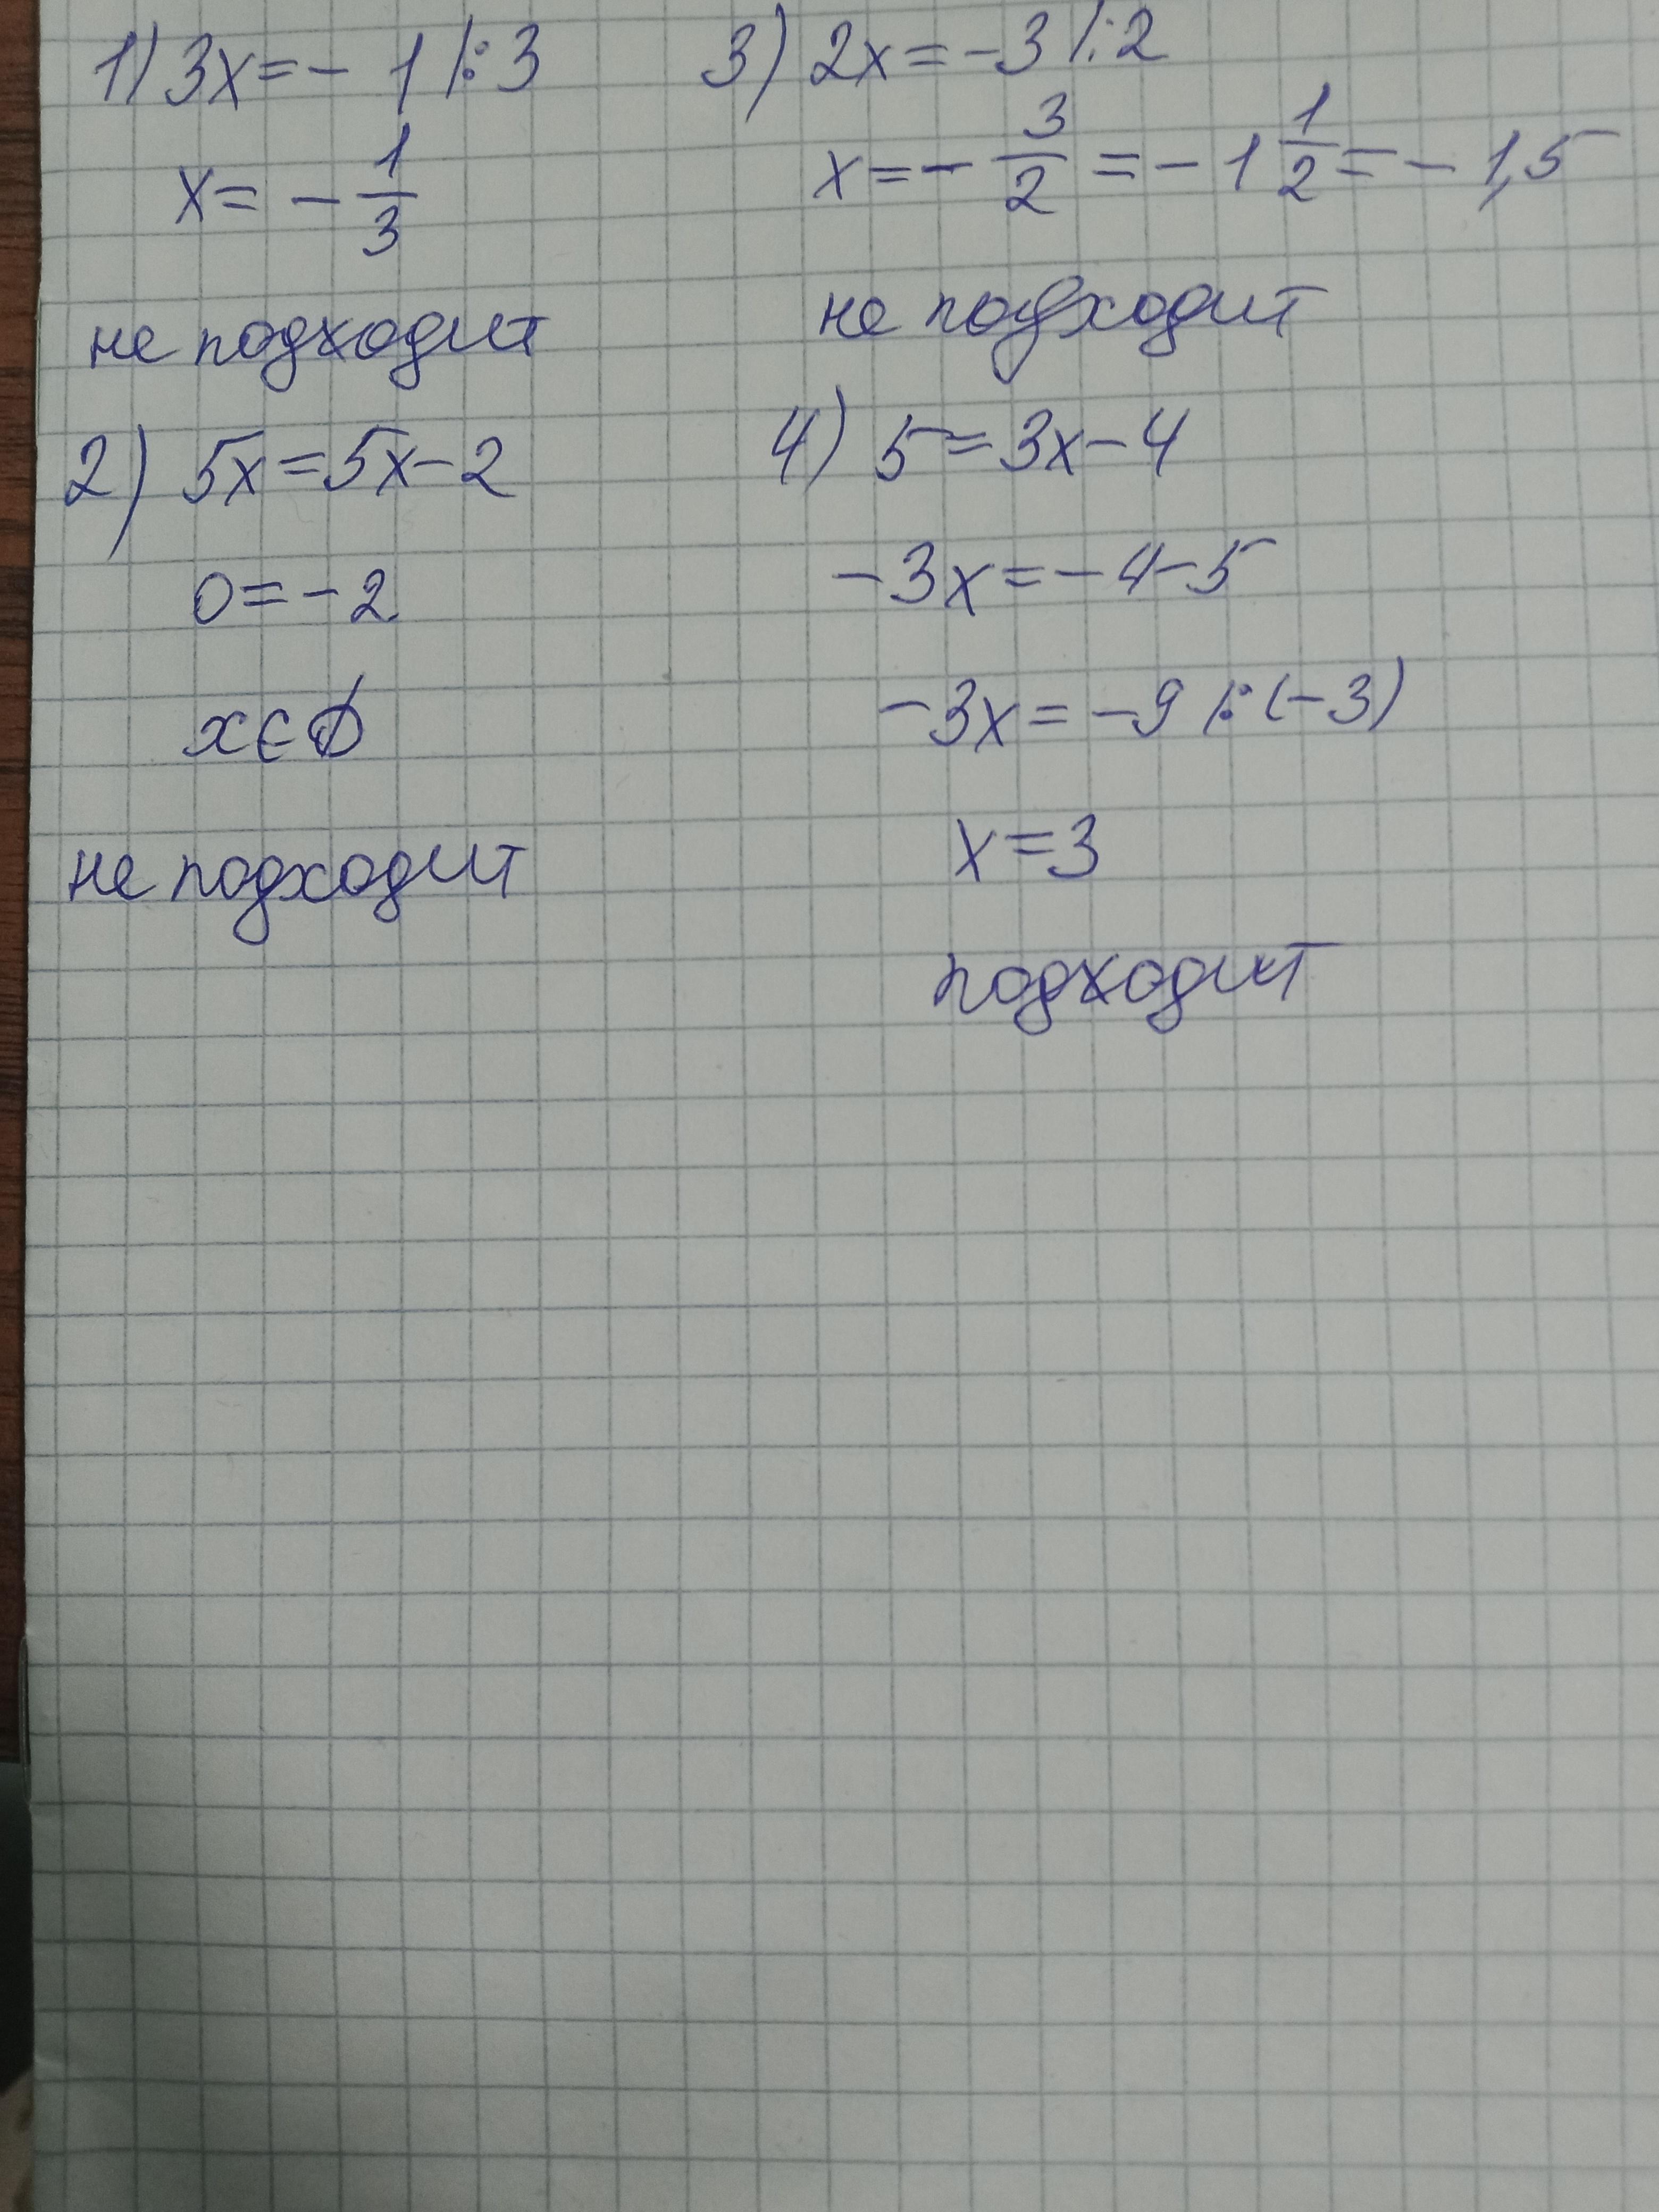 1) 3x = - 1 |: 3
x = - 1/3
не подходит
2) 5x = 5x - 2
0 = - 2
x ∈ ∅
не подходит
3) 2x = - 3 |: 2
x = - 3/2 = - 1 1/2 = - 1,5
не подходит
4) 5 = 3x - 4
- 3x = - 4 - 5
- 3x = - 9 |: (- 3)
x = 3
подходит